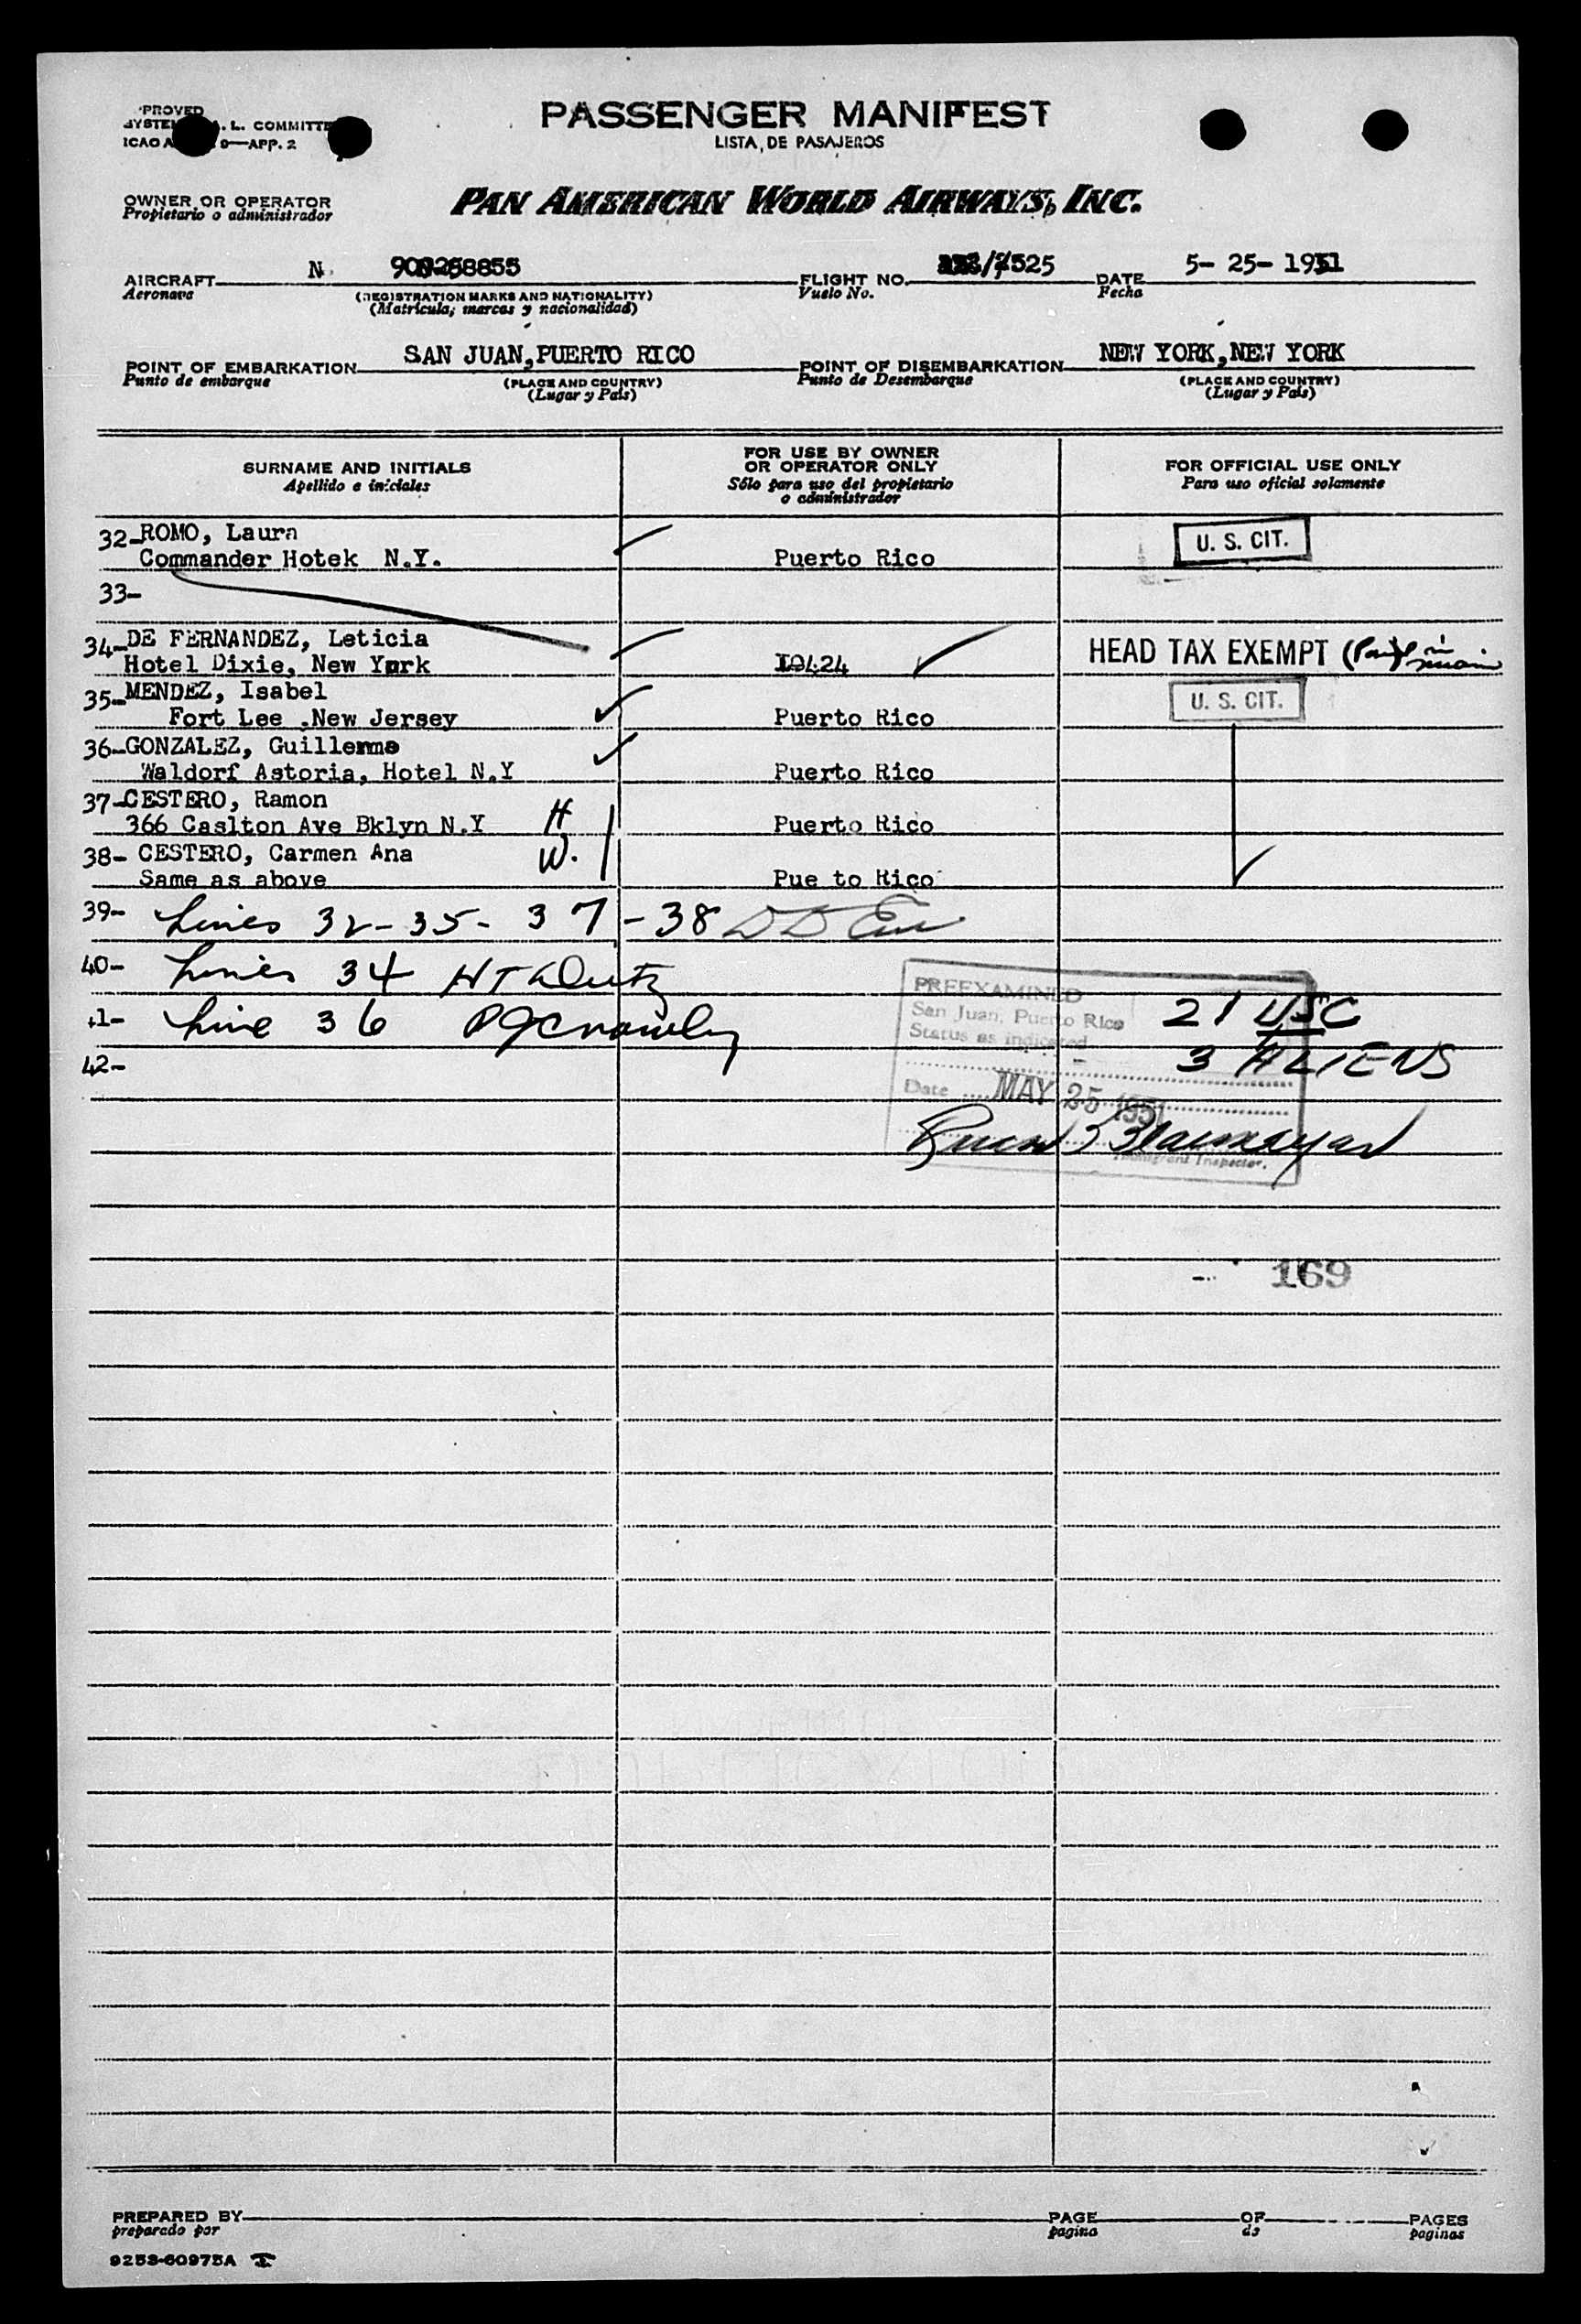 PASSENGER MANIFEST
LISTA DE PASAJEROS
PROVED
L. COMMITTE
ICAO 9—APP. 2
OWNER OR OPERATOR
Propietario o administrador
PAN AMERICAN WORLD AIRWAYS, INC.
AIRCRAFT N 8855
Aeronave
(REGISTRATION MARKS AND NATIONALITY)
(Matricula, marcas y nacionalidad)
FLIGHT NO. /7525
Vuelo No.
DATE 5- 25- 1951
Fecha
POINT OF EMBARKATION SAN JUAN, PUERTO RICO
Punto de embarque
(PLACE AND COUNTRY)
(Lugar y Pais)
POINT OF DISEMBARKATION NEW YORK, NEW YORK
Punto de Desembarque
(PLACE AND COUNTRY)
(Lugar y Pais)
SURNAME AND INITIALS
Apellido e iniciales
FOR USE BY OWNER
OR OPERATOR ONLY
Sólo para uso del propietario
o administrador
FOR OFFICIAL USE ONLY
Para uso oficial solamente
32- ROMO, Laura
Commander Hotek N.Y. Puerto Rico U. S. CIT.
33-
34- DE FERNANDEZ, Leticia
Hotel Dixie, New York 10424 HEAD TAX EXEMPT
35- MENDEZ, Isabel
Fort Lee ,New Jersey Puerto Rico U. S. CIT.
36- GONZALEZ, Guillermo
Waldorf Astoria, Hotel N.Y Puerto Rico
37- CESTERO, Ramon
366 Caslton Ave Bklyn N.Y H Puerto Rico
38- CESTERO, Carmen Ana W.
Same as above Pue to Rico
39- Lines 32-35- 37-38
40- Lines 34
41- Line 36
42-
PREEXAMINED
San Juan, Puerto Rico
Status as indicated
Date MAY 25 1951
Immigrant Inspector.
21 USC
3 ALIENS
169
PREPARED BY
preparado por
PAGE OF PAGES
pagina de paginas
9253-60975A